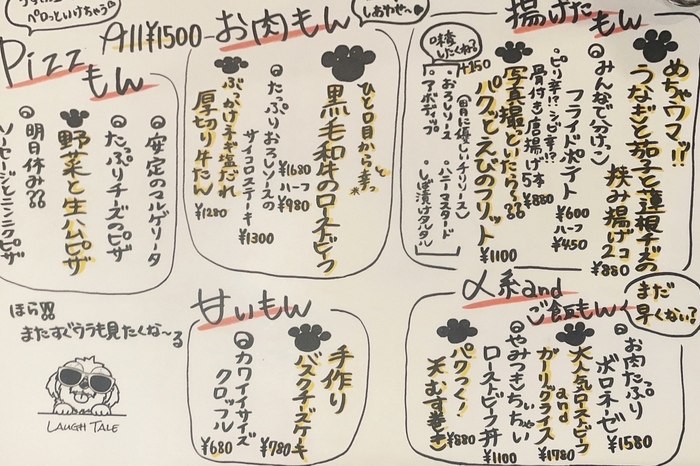 ペロっといけちゃう
しあわせ〜
揚げたもん
めちゃウマッ!!
うなぎと茄子と蓮根チーズの
挟み揚げ2コ
¥880
みんなで分けっこ
フライドポテト
¥600
ハーフ
¥450
ピリ辛!?シビ辛!?
骨付き唐揚げ5本
¥880
写真撮といたらぁ
パクっとえびのフリット
¥1100
(胃に優しいチリソース)
味変したくね?
+¥150
・おろしソース
・ハニーマスタード
・アボディップ
・しば漬けタルタル
お肉もん
ひと口目から幸っ
黒毛和牛のローストビーフ
¥1680
ハーフ
¥980
たっぷりおろしソースの
サイコロステーキ
¥1300
ぶっかけネギ塩だれ
厚切り牛たん
¥1280
Pizzもん
All¥1500-
安定のマルゲリータ
たっぷりチーズのピザ
野菜と生ハムピザ
明日休み
ソーセージとニンニクピザ
〆系and
ご飯もん
まだ
早くない?
お肉たっぷり
ボロネーゼ
¥1580
大人気ローストビーフ
and
ガーリックライス
¥1780
やみつきちっちゃい
ローストビーフ丼
¥1100
パクつく!
天むす巻き
¥880
甘いもん
手作り
バスクチーズケーキ
¥780
カワイイサイズ
クロッフル
¥680
ほら
またすぐウラも見たくな〜る
LAUGH TALE